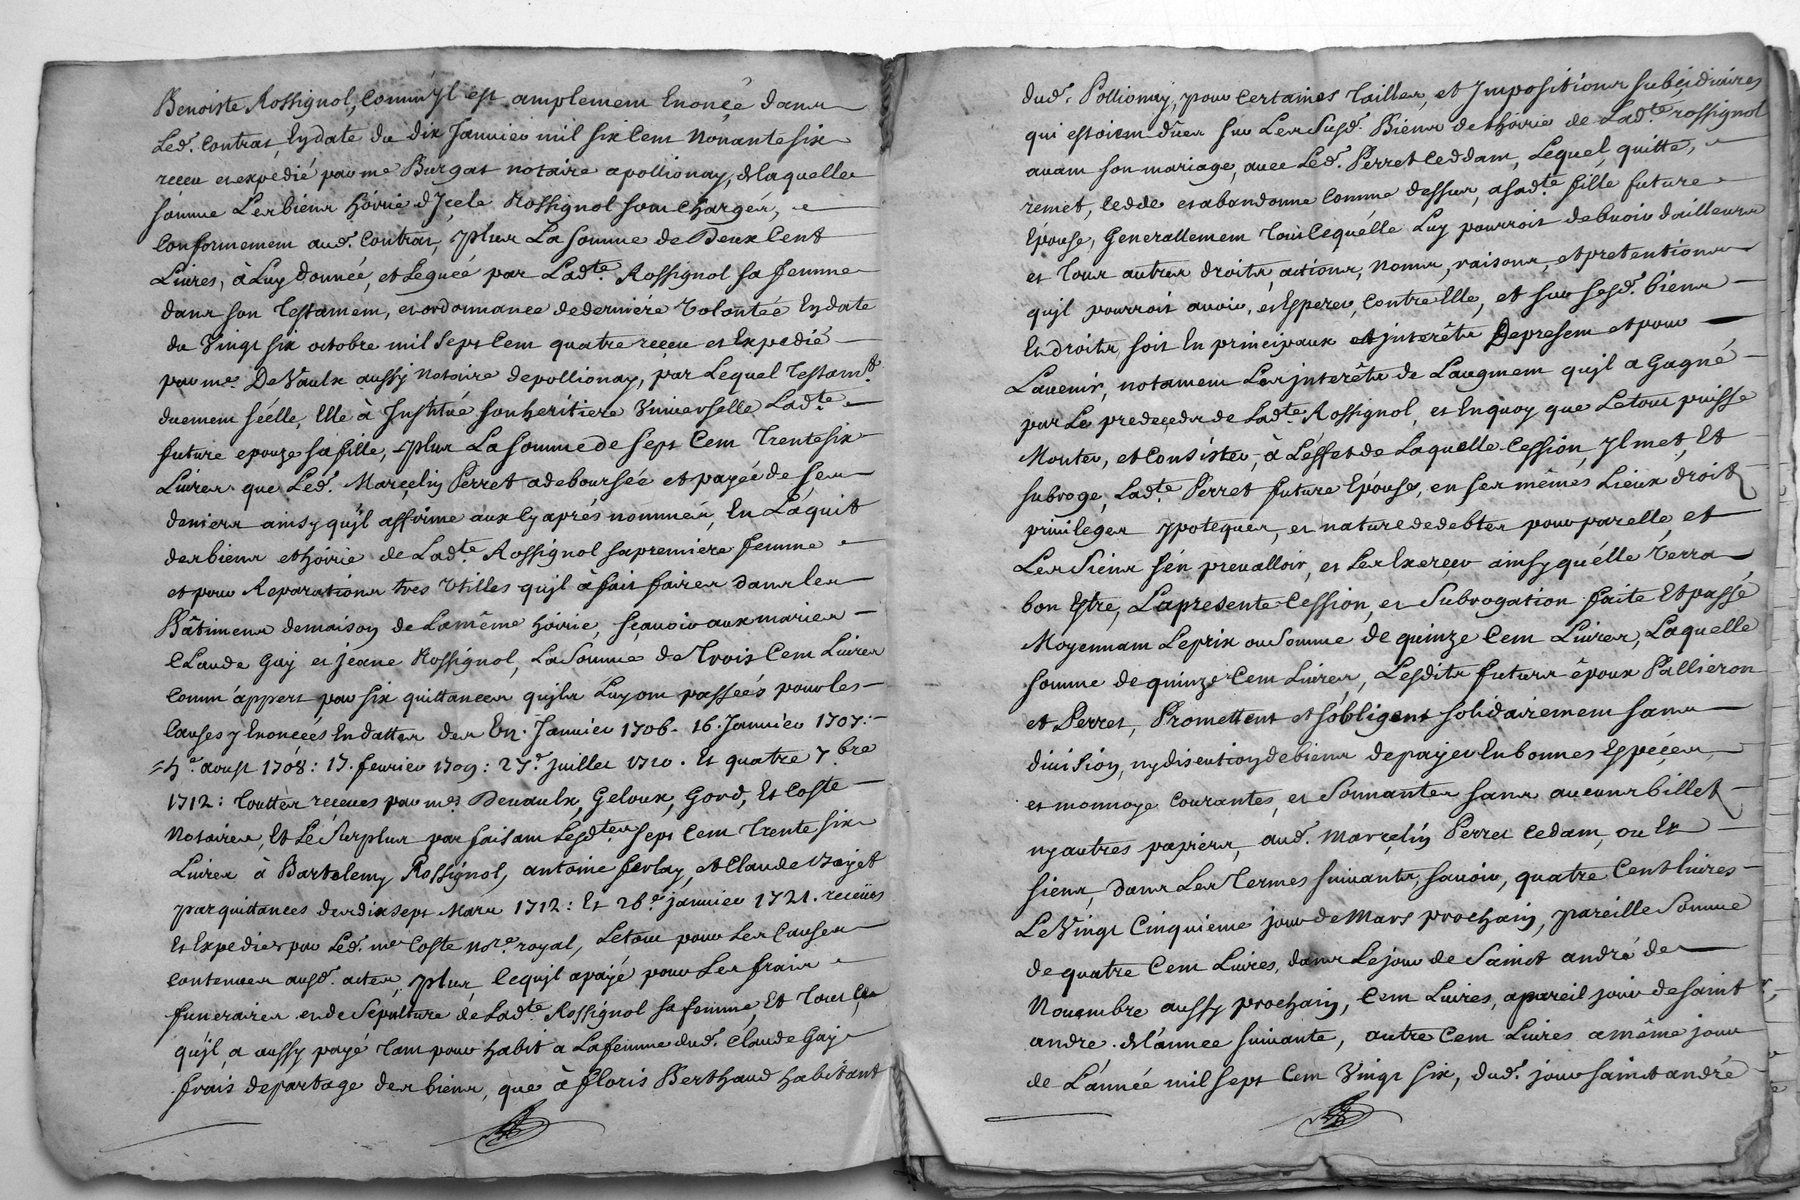 Benoiste Rossignol, comm'yl est amplement Enoncé dans
Led. contrat, En date du dix Janvier mil six Cent Nonante six
receu et expédié par me Burgat notaire a pollionay, de laquelle
somme Les biens hoirie d'Jcele Rossignol sont chargés,
Conformement aud. Contrat, yplus La somme de Deux Cent
Livres, à Luy donnée, et Leguéé par Ladte Rossignol sa femme
dans son Testament, et ordonnance de derniére Volontée En date
du Vingt six octobre mil sept Cent quatre receu et Expedié
par me. DeVaulx aussy notaire de pollionay, par Lequel Testamt.
duement scéllé, Elle à Jnstitué son heritiere Vniverselle Ladte.
future epouze sa fille, yplus La somme de sept Cent Trente six
Livres que Led. Marçelin Perret a deboursée et payéé de ses
deniers ainsy qu'jl affirme aux Cy aprés nommés, En L'aquit
des biens et hoirie de Ladte Rossignol sa premiere femme
et pour Reparations tres Vtilles qu'jl à fait faires dans les
Bâtimens de maison de La même hoirie, sçavoir aux mariés
Claude Gay et jeane Rossignol, La Somme de Trois Cent Livres
comm'appert par six quittances qu'jls Luy ont passéés pour les
Causes y Enoncéés En dattes des En. Janvier 1706. 16. Janvier 1707:
4e. aoust 1708: 17. fevrier 1709: 27e. juillet 1710. Et quatre 7.bre
1712: Touttes receues par mes Devaulx, Geloux, Gord, Et Coste
Notaires, Et Le Surplus parfaisant Lesdtes sept Cent Trente six
Livres à Bartelemy Rossignol, antoine ferlay, et Claude
par quittances des dix sept Mars 1712: Et 26e. janvier 1721. receües
Et Expediés par Led. me Coste nore. royal, Le tout pour Les Causes
contenues ausd. actes, yplus, Ce qu'jl a payé pour Les frais
funeraires et de Sepulture de Ladte. Rossignol sa femme, Et Tout Ce
qu'jl a aussy payé Tant pour habit a La femme dud. Claude Gay
frais de partage des biens, que à floris Berthaud habitant
dud. Pollionay, pour Certaines Tailles, et Jmpositions subcidiaires
qui estoient dûes sur Les Susd. Biens de thoirie de Ladte rossignol
avant son mariage, avec Led. Perret Ceddant, Lequel quitte,
remet, Cedde et abandonne Comme dessus, a sadte fille future
Epouse, Generallement Tout Ce qu'elle Luy pourroit debvoir d'ailleurs
et Tous autres droits, actions, noms, raisons, et pretentions
qu'jl pourroit avoir, et Esperer, contr'Elle, et sur sesd. biens
Et droits, soit En principaux et jnterêts De present et pour
L'avenir, notament Les jnterêts de L'augment qu'jl a Gagné
par Le predecéds de Ladte. Rossignol, et En quoy que Le tout puisse
Monter, et Consister, à L'éffet de Laquelle Cession, yl met, Et
subroge, Ladte. Perret future Epouse, en ses mêmes Lieux droits
privileges ypoteques, et nature de debtes pour par elle, et
Les Siens s'én prevalloir, et Les Exercer ainsy qu'élle Verra
bon Estre, La presente Cession, et Subrogation faite Et passé
Moyennant Le prix ou Somme de quinze Cent Livres, Laquelle
somme de quinze Cent Livres, Lesdits futurs époux Pallieron
et Perret, Promettent et s'obligent solidairement sans
division, ny discution de biens de payer En bonnes Especes
et monnoye Courantes, et Sonnantes sans aucuns billets
ny autres papiers, aud. Marçelin Perret Cedant, ou Es
siens, dans Les Termes suivants, savoir, quatre Cent livres
Le Vingt Cinquiéme jour de Mars prochain, pareille Somme
de quatre Cent Livres, dans Le jour de Sainct andré de
Novembre aussy prochain, Cent Livres, a pareil jour de saint
andré. de L'année suivante, autre Cent Livres a même jour
de L'année mil sept Cent Vingt six, dud. jour sainct andré